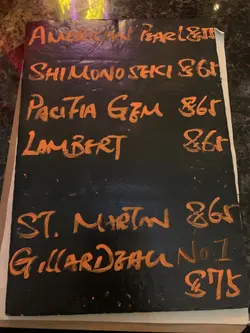 AMERICAN PEARL
SHIMONOSEKI $65
PACIFIA GEM $65
LAMBERT $65
ST. MARTIN $65
GILLARDEAU No 1
$75